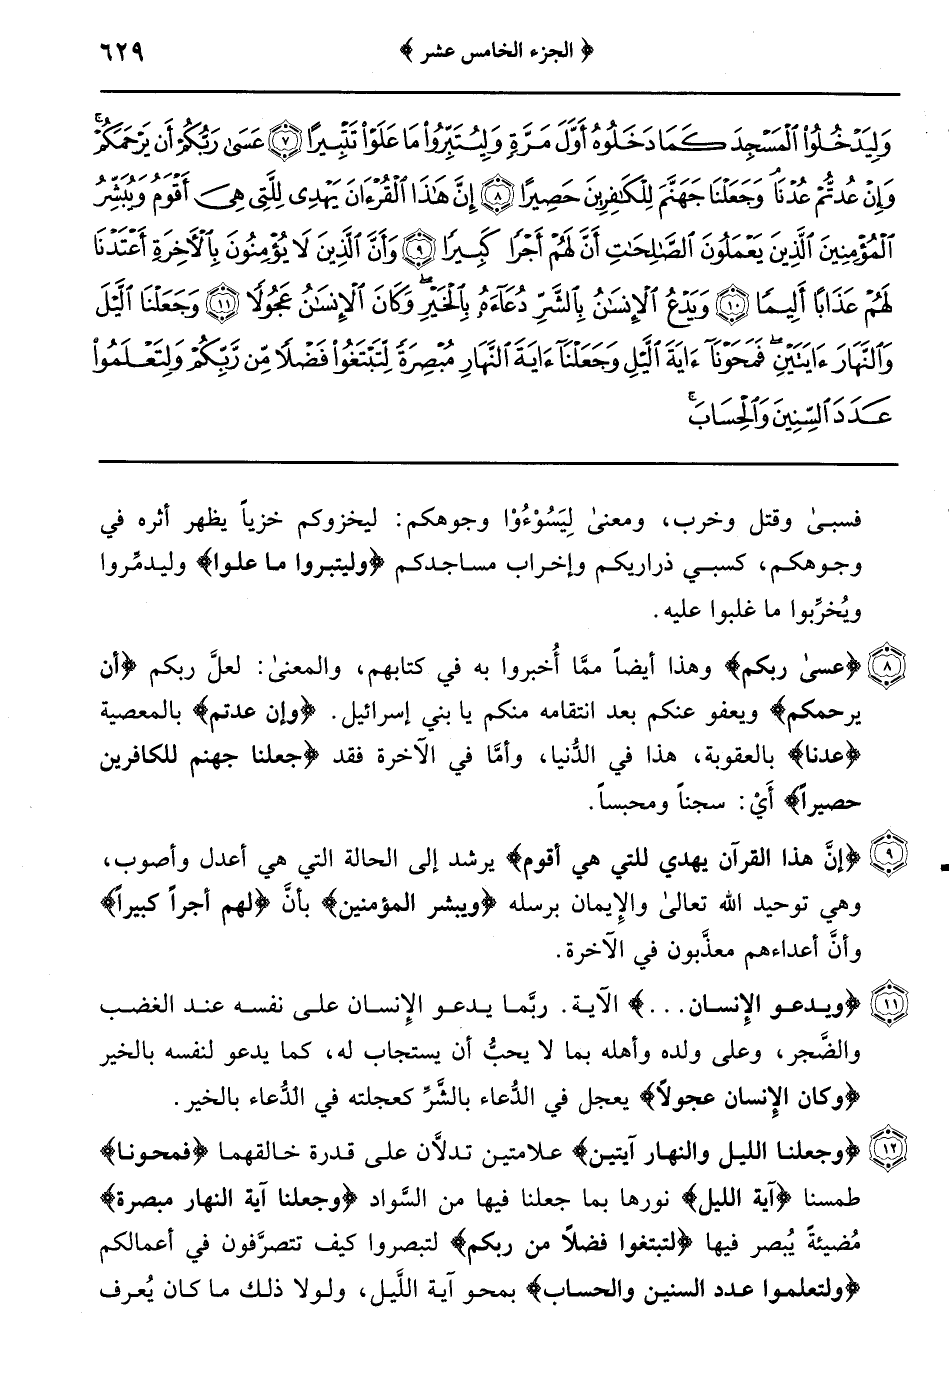 ﴿ الجزء الخامس عشر ﴾ ٦٢٩
وَلِيَدْخُلُوا۟ ٱلْمَسْجِدَ كَمَا دَخَلُوهُ أَوَّلَ مَرَّةٍ وَلِيُتَبِّرُوا۟ مَا عَلَوْا۟ تَتْبِيرًا ٧ عَسَىٰ رَبُّكُمْ أَن يَرْحَمَكُمْ ۚ
وَإِنْ عُدتُّمْ عُدْنَا ۘ وَجَعَلْنَا جَهَنَّمَ لِلْكَٰفِرِينَ حَصِيرًا ٨ إِنَّ هَٰذَا ٱلْقُرْءَانَ يَهْدِى لِلَّتِى هِىَ أَقْوَمُ وَيُبَشِّرُ
ٱلْمُؤْمِنِينَ ٱلَّذِينَ يَعْمَلُونَ ٱلصَّٰلِحَٰتِ أَنَّ لَهُمْ أَجْرًا كَبِيرًا ٩ وَأَنَّ ٱلَّذِينَ لَا يُؤْمِنُونَ بِٱلْأَخِرَةِ أَعْتَدْنَا
لَهُمْ عَذَابًا أَلِيمًا ١٠ وَيَدْعُ ٱلْإِنسَٰنُ بِٱلشَّرِّ دُعَآءَهُۥ بِٱلْخَيْرِ ۖ وَكَانَ ٱلْإِنسَٰنُ عَجُولًا ١١ وَجَعَلْنَا ٱلَّيْلَ
وَٱلنَّهَارَ ءَايَتَيْنِ ۖ فَمَحَوْنَآ ءَايَةَ ٱلَّيْلِ وَجَعَلْنَآ ءَايَةَ ٱلنَّهَارِ مُبْصِرَةً لِّتَبْتَغُوا۟ فَضْلًا مِّن رَّبِّكُمْ وَلِتَعْلَمُوا۟
عَدَدَ ٱلسِّنِينَ وَٱلْحِسَابَ ۚ
فسبىٰ وقتل وخرب، ومعنىٰ لِيَسُـۥٓـُٔوا۟ وجوهكم: ليخزوكم خزياً يظهر أثره في
وجوهكم، كسبي ذراريكم وإخراب مساجدكم ﴿وليتبروا ما علوا﴾ وليدمِّروا
ويُخرِّبوا ما غلبوا عليه.
٨ ﴿عسىٰ ربكم﴾ وهذا أيضاً ممَّا أُخبروا به في كتابهم، والمعنىٰ: لعلَّ ربكم ﴿أن
يرحمكم﴾ ويعفو عنكم بعد انتقامه منكم يا بني إسرائيل. ﴿وإن عدتم﴾ بالمعصية
﴿عدنا﴾ بالعقوبة، هذا في الدُّنيا، وأمَّا في الآخرة فقد ﴿جعلنا جهنم للكافرين
حصيراً﴾ أَيْ: سجناً ومحبساً.
٩ ﴿إنَّ هذا القرآن يهدي للتي هي أقوم﴾ يرشد إلى الحالة التي هي أعدل وأصوب،
وهي توحيد الله تعالىٰ والإِيمان برسله ﴿ويبشر المؤمنين﴾ بأنَّ ﴿لهم أجراً كبيراً﴾
وأنَّ أعداءهم معذَّبون في الآخرة.
١١ ﴿ويدعو الإِنسان...﴾ الآية. ربَّما يدعو الإِنسان على نفسه عند الغضب
والضَّجر، وعلى ولده وأهله بما لا يحبُّ أن يستجاب له، كما يدعو لنفسه بالخير
﴿وكان الإِنسان عجولاً﴾ يعجل في الدُّعاء بالشَّرِّ كعجلته في الدُّعاء بالخير.
١٢ ﴿وجعلنا الليل والنهار آيتين﴾ علامتين تدلاَّن على قدرة خالقهما ﴿فمحونا﴾
طمسنا ﴿آية الليل﴾ نورها بما جعلنا فيها من السَّواد ﴿وجعلنا آية النهار مبصرة﴾
مُضيئةً يُبصر فيها ﴿لتبتغوا فضلاً من ربكم﴾ لتبصروا كيف تتصرَّفون في أعمالكم
﴿ولتعلموا عدد السنين والحساب﴾ بمحو آية اللَّيل، ولولا ذلك ما كان يُعرف